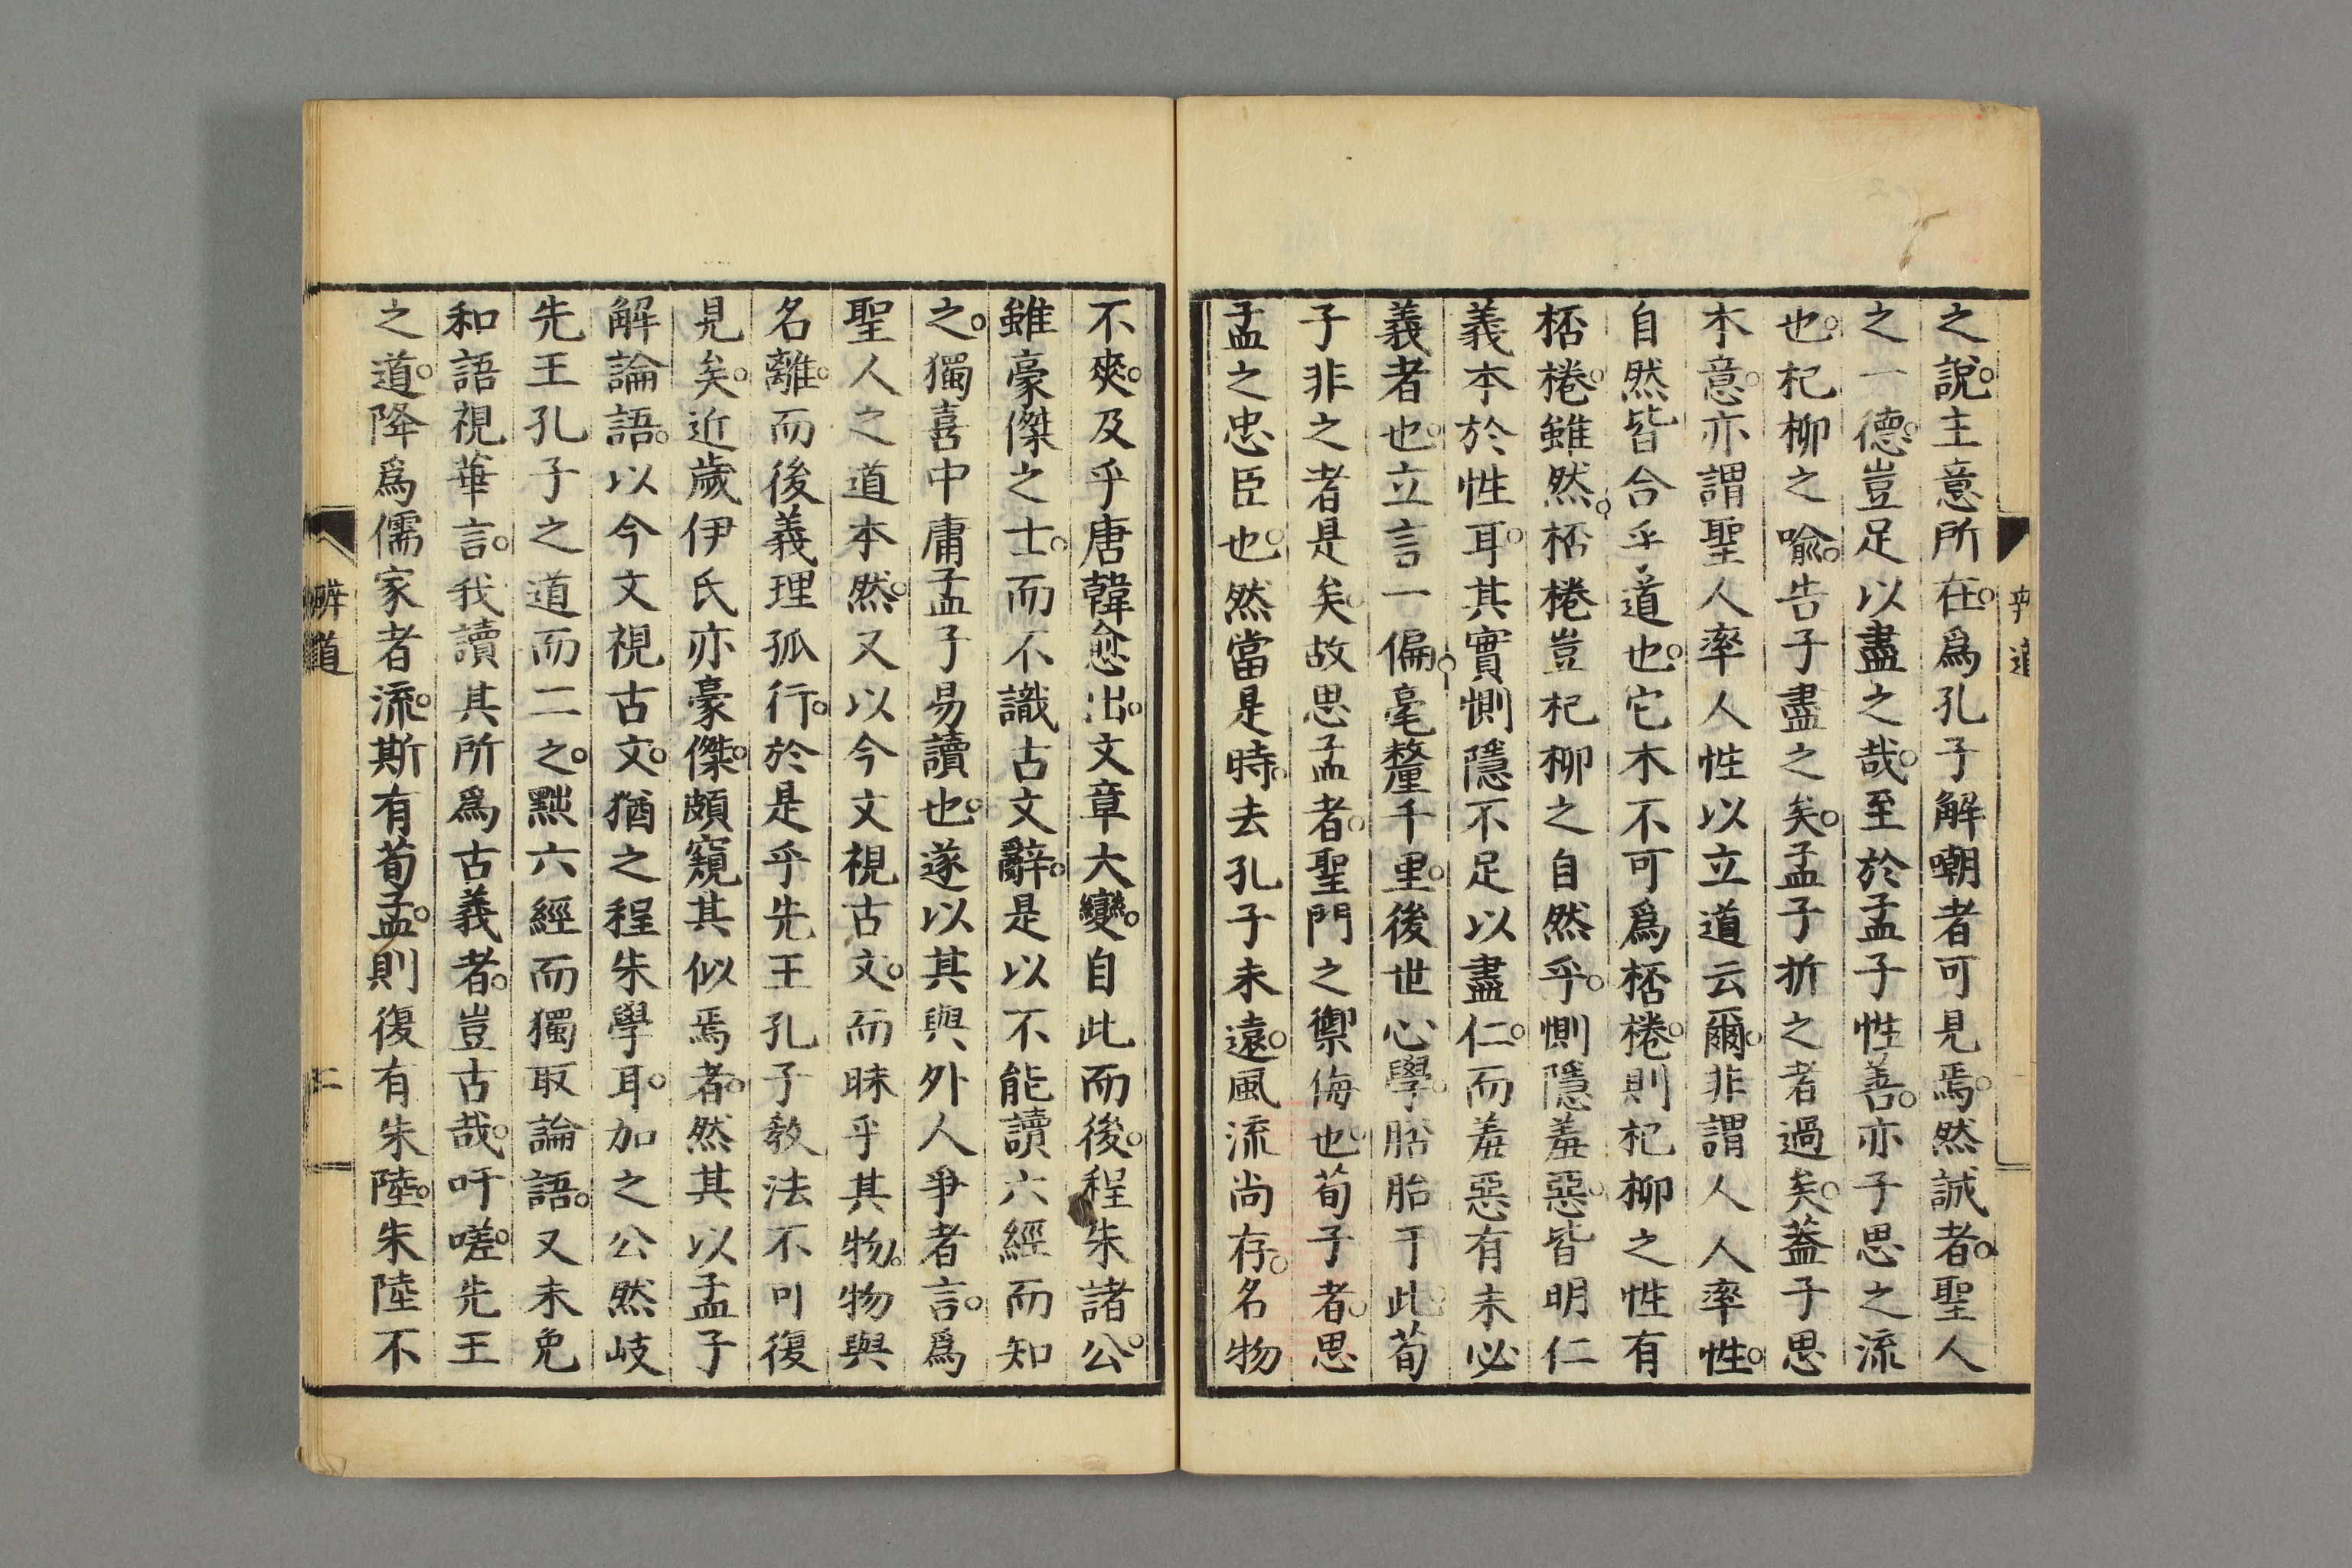 之說。主意所在。爲孔子解嘲者可見焉。然誠者。聖人
之一德。豈足以盡之哉。至於孟子性善。亦子思之流
也。杞柳之喩。告子盡之矣。孟子折之者過矣。葢子思
本意。亦謂聖人率人性以立道云爾。非謂人人率性。
自然皆合乎道也。它木不可爲桮棬。則杞柳之性有
桮棬。雖然。桮棬豈杞柳之自然乎。惻隱羞惡。皆明仁
義本於性耳。其實惻隱不足以盡仁。而羞惡有未必
義者也。立言一偏。毫釐千里。後世心學。胚胎于此。荀
子非之者是矣。故思孟者。聖門之禦侮也。荀子者。思
孟之忠臣也。然當是時。去孔子未遠。風流尚存。名物
不爽。及乎唐韓愈出。文章大變。自此而後。程朱諸公。
雖豪傑之士。而不識古文辭。是以不能讀六經而知
之。獨喜中庸孟子易讀也。遂以其與外人爭者言。爲
聖人之道本然。又以今文視古文。而昧乎其物。物與
名離。而後義理孤行。於是乎先王孔子教法不可復
見矣。近歲伊氏亦豪傑。頗窺其似焉者。然其以孟子
解論語。以今文視古文。猶之程朱學耳。加之公然岐
先王孔子之道而二之。黜六經而獨取論語。又未免
和語視華言。我讀其所爲古義者。豈古哉。吁嗟。先王
之道。降爲儒家者流。斯有荀孟。則復有朱陸。朱陸不
辨道
二